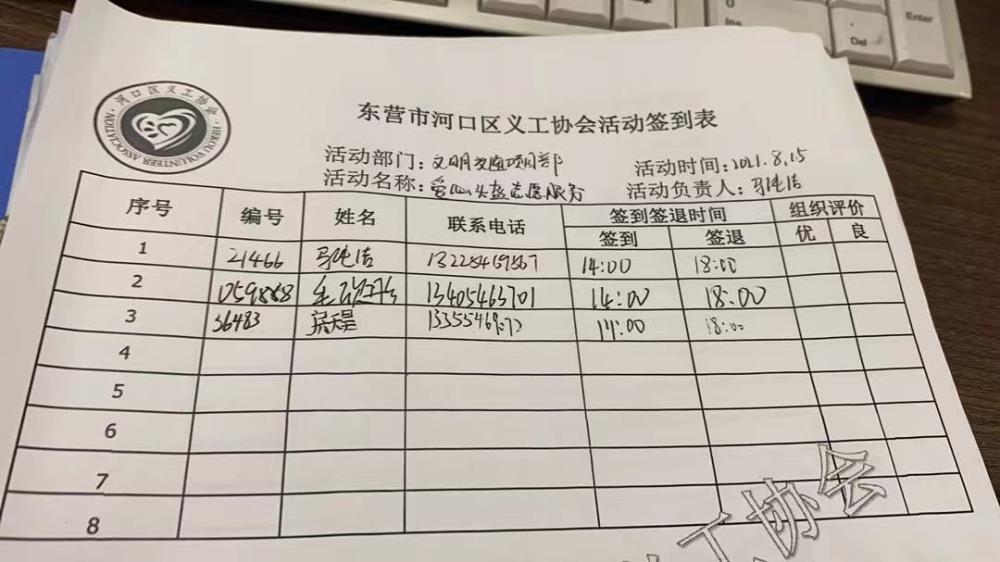 Enter
Ins
Del
河口区义工协会
HEKOU VOLUNTEER ASSOCIATION
东营市河口区义工协会活动签到表
活动部门：文明交通项目部
活动时间：2021.8.15
活动名称：爱心头盔志愿服务
活动负责人：马纯洁
序号 编号 姓名 联系电话 签到签退时间 组织评价
签到 签退 优 良
1 21466 马纯洁 14:00 18:00
2 1059868 13405463701 14:00 18:00
3 36483 14:00 18:00
4
5
6
7
8
工协会